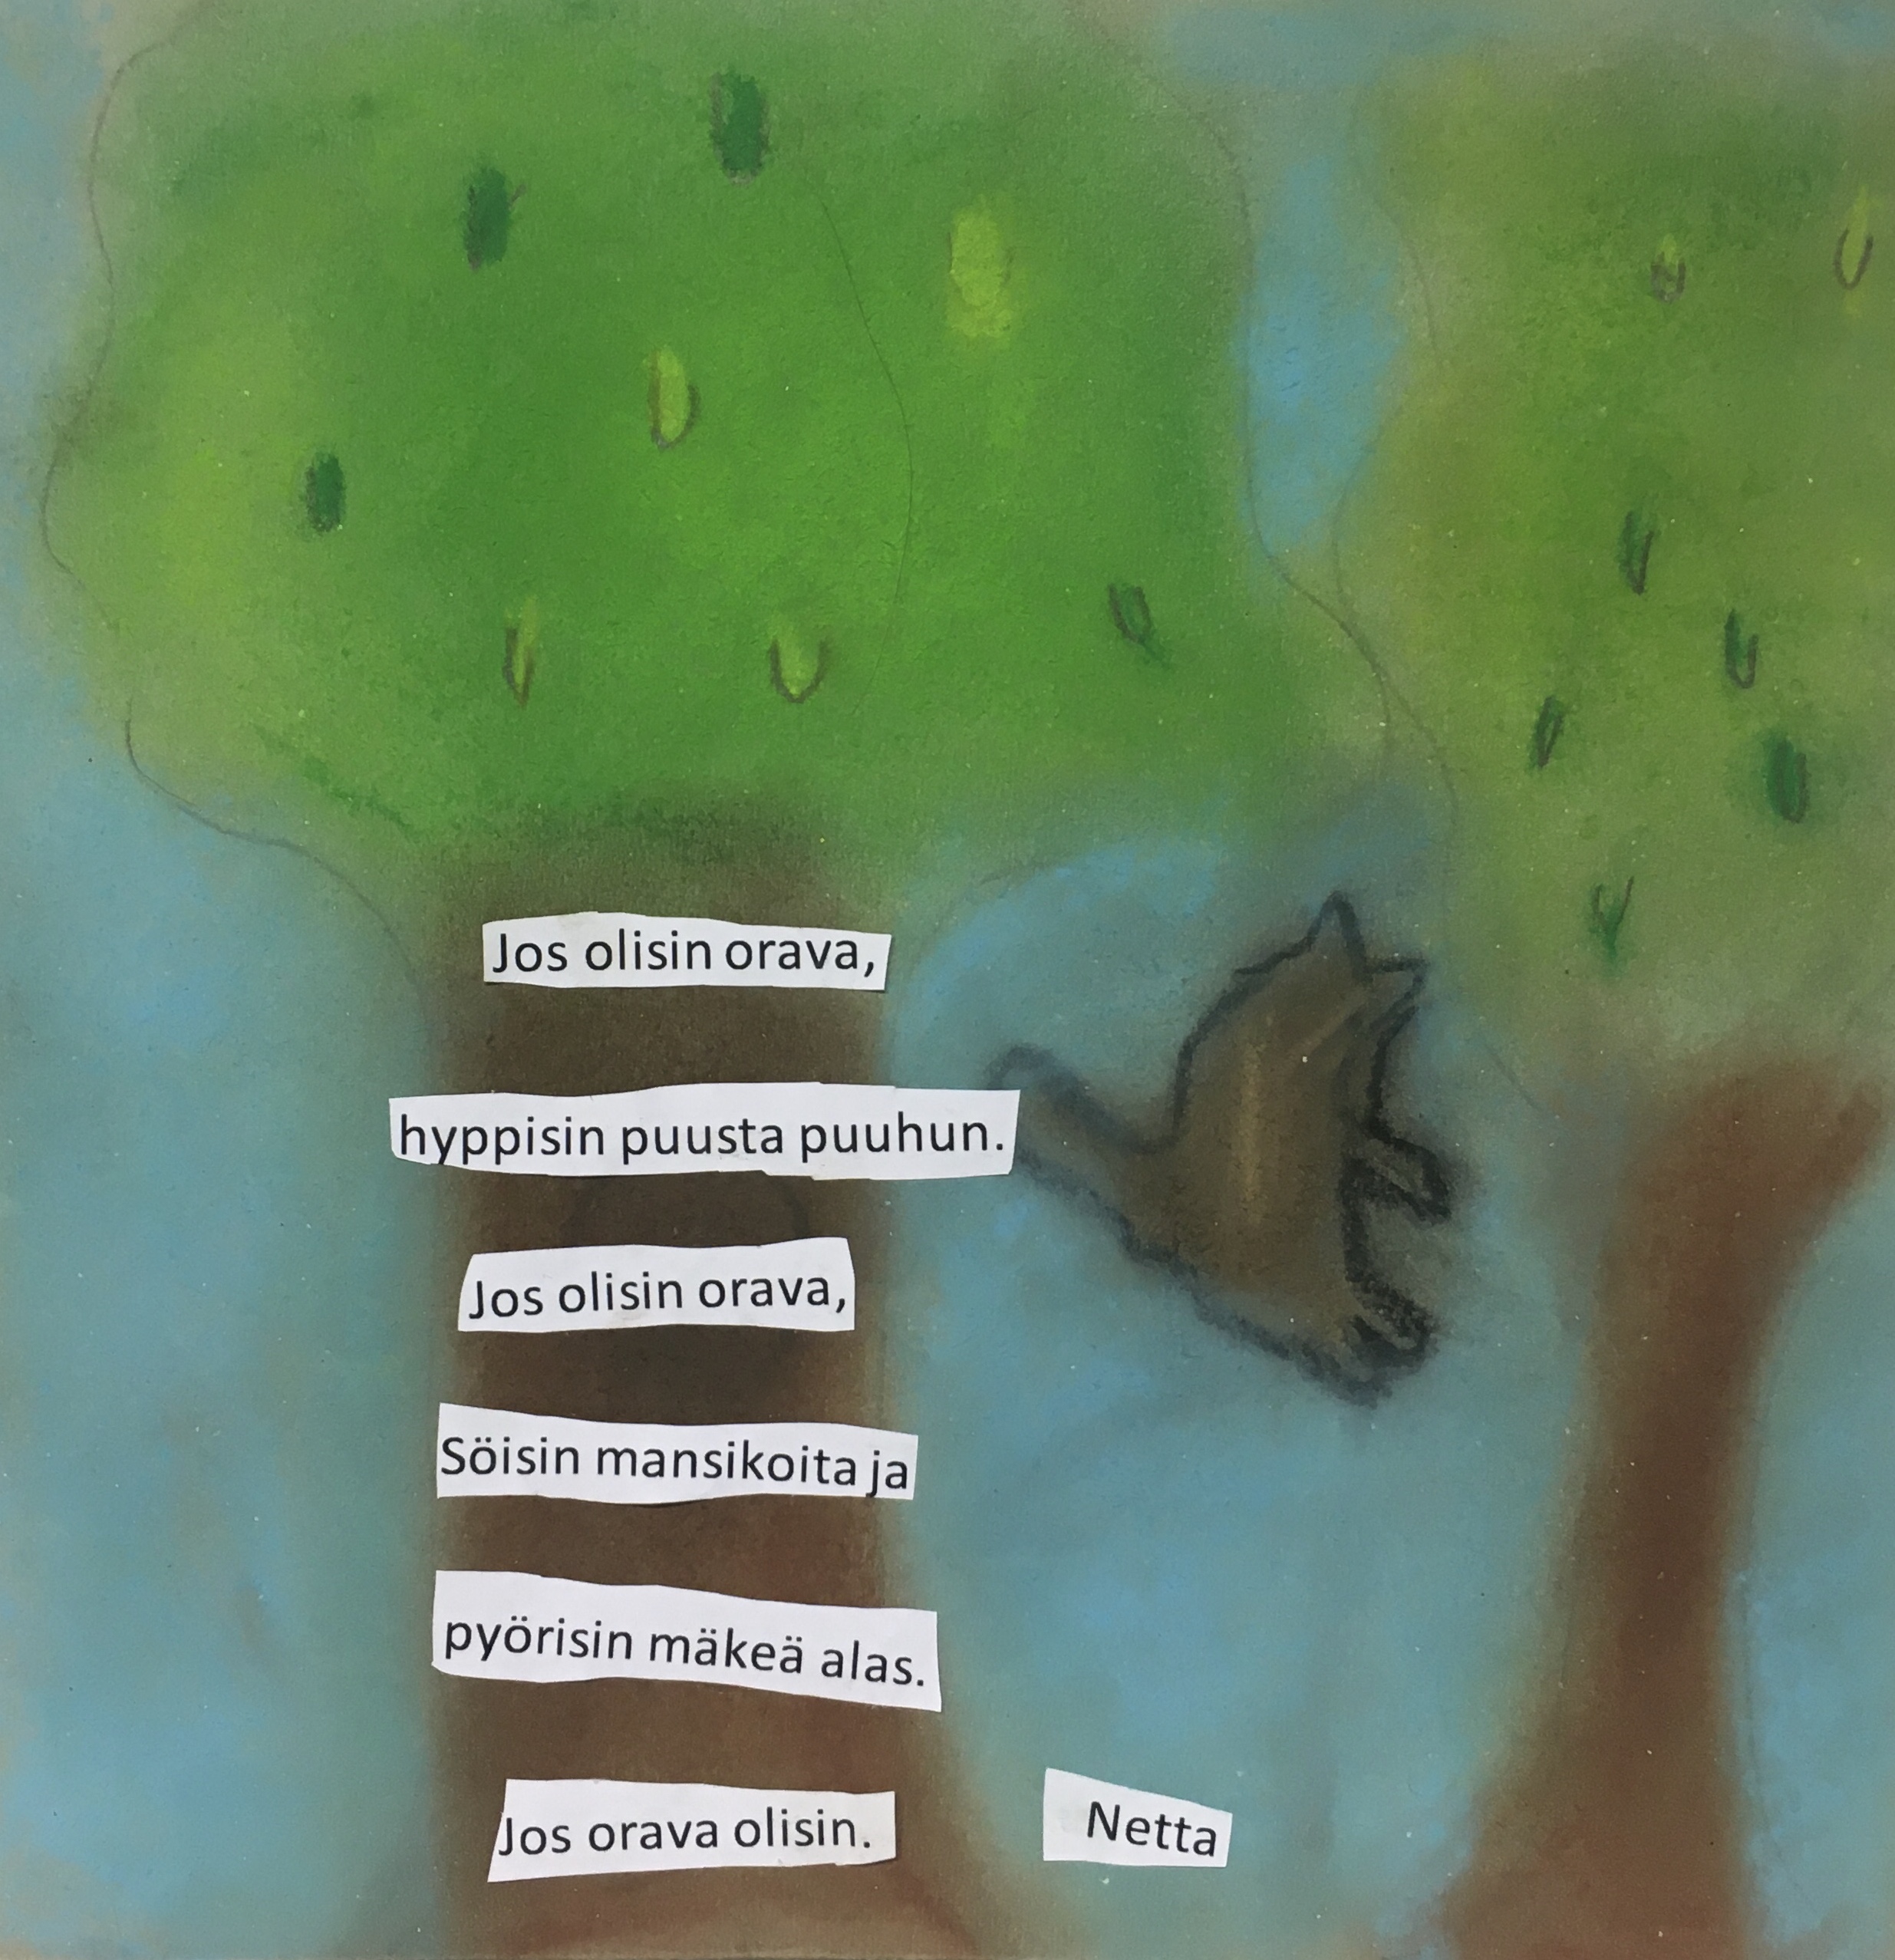 Jos olisin orava,
hyppisin puusta puuhun.
Jos olisin orava,
Söisin mansikoita ja
pyörisin mäkeä alas.
Jos orava olisin.
Netta